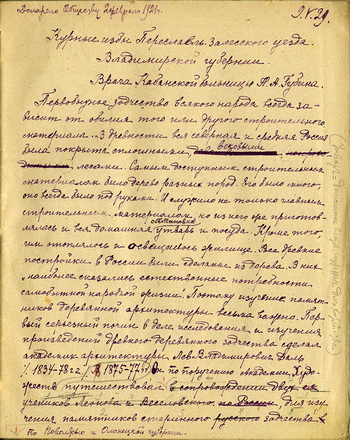 Доложено Обществу 2 февраля 1928 г.
9.V.29.
Курные избы Переславль-Залесского уезда
Владимирской губернии.
Врача Кабанской больницы П. А. Губина.
Первобытное зодчество всякого народа всегда за-
висит от обилия того или другого строительного
материала. В древности вся северная и средняя Россия
была покрыта сплошными, вековыми
лесами. Самым доступным строительным
материалом было дерево разных пород. Его было много,
оно всегда было под руками. И служило не только главным
строительным материалом, но из него же приготов-
лялась и вся домашняя утварь и посуда. Кроме того,
им отоплялось и освещалось жилище. Все древние
постройки в России были сделаны из дерева. В них
наиболее сказались естественные потребности
самобытной народной жизни. Поэтому изучение памят-
ников деревянной архитектуры весьма важно. Пер-
вый серьезный почин в деле исследования и изучения
произведений древнего деревянного зодчества сделал
академик архитектуры Лев Владимирович Даль
/ 1834-78 гг / В 1875-77 гг он по поручению Академии Худо-
жеств путешествовал в сопровождении двух
учеников Леонова и Веселовского по России для изу-
чения памятников старинного русского зодчества
по Поволжью и Олонецкой губернии.